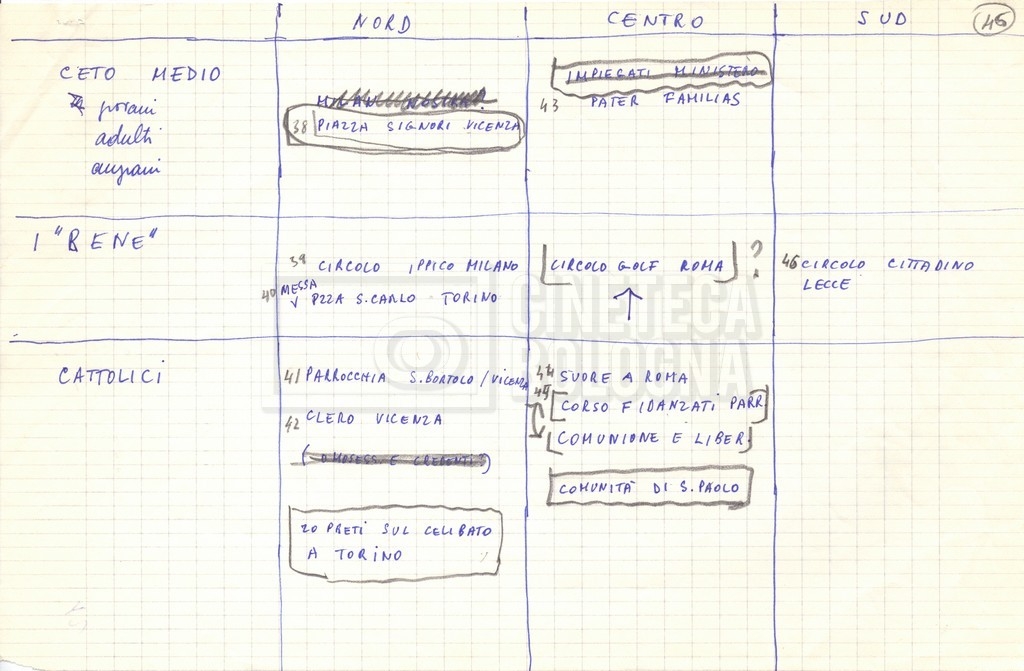 NORD CENTRO SUD 46
CETO MEDIO
giovani
adulti
anziani
38 PIAZZA SIGNORI VICENZA
IMPIEGATI MINISTERO
43 PATER FAMILIAS
I "BENE"
39 CIRCOLO IPPICO MILANO
40 MESSA
PZZA S.CARLO TORINO
CIRCOLO GOLF ROMA ?
46 CIRCOLO CITTADINO
LECCE
CATTOLICI
41 PARROCCHIA S.BORTOLO/VICENZA
42 CLERO VICENZA
(OMOSESS. E CREDENTI)
20 PRETI SUL CELIBATO
A TORINO
44 SUORE A ROMA
45 CORSO FIDANZATI PARR
COMUNIONE E LIBER.
COMUNITÀ DI S.PAOLO
CINETECA
BOLOGNA